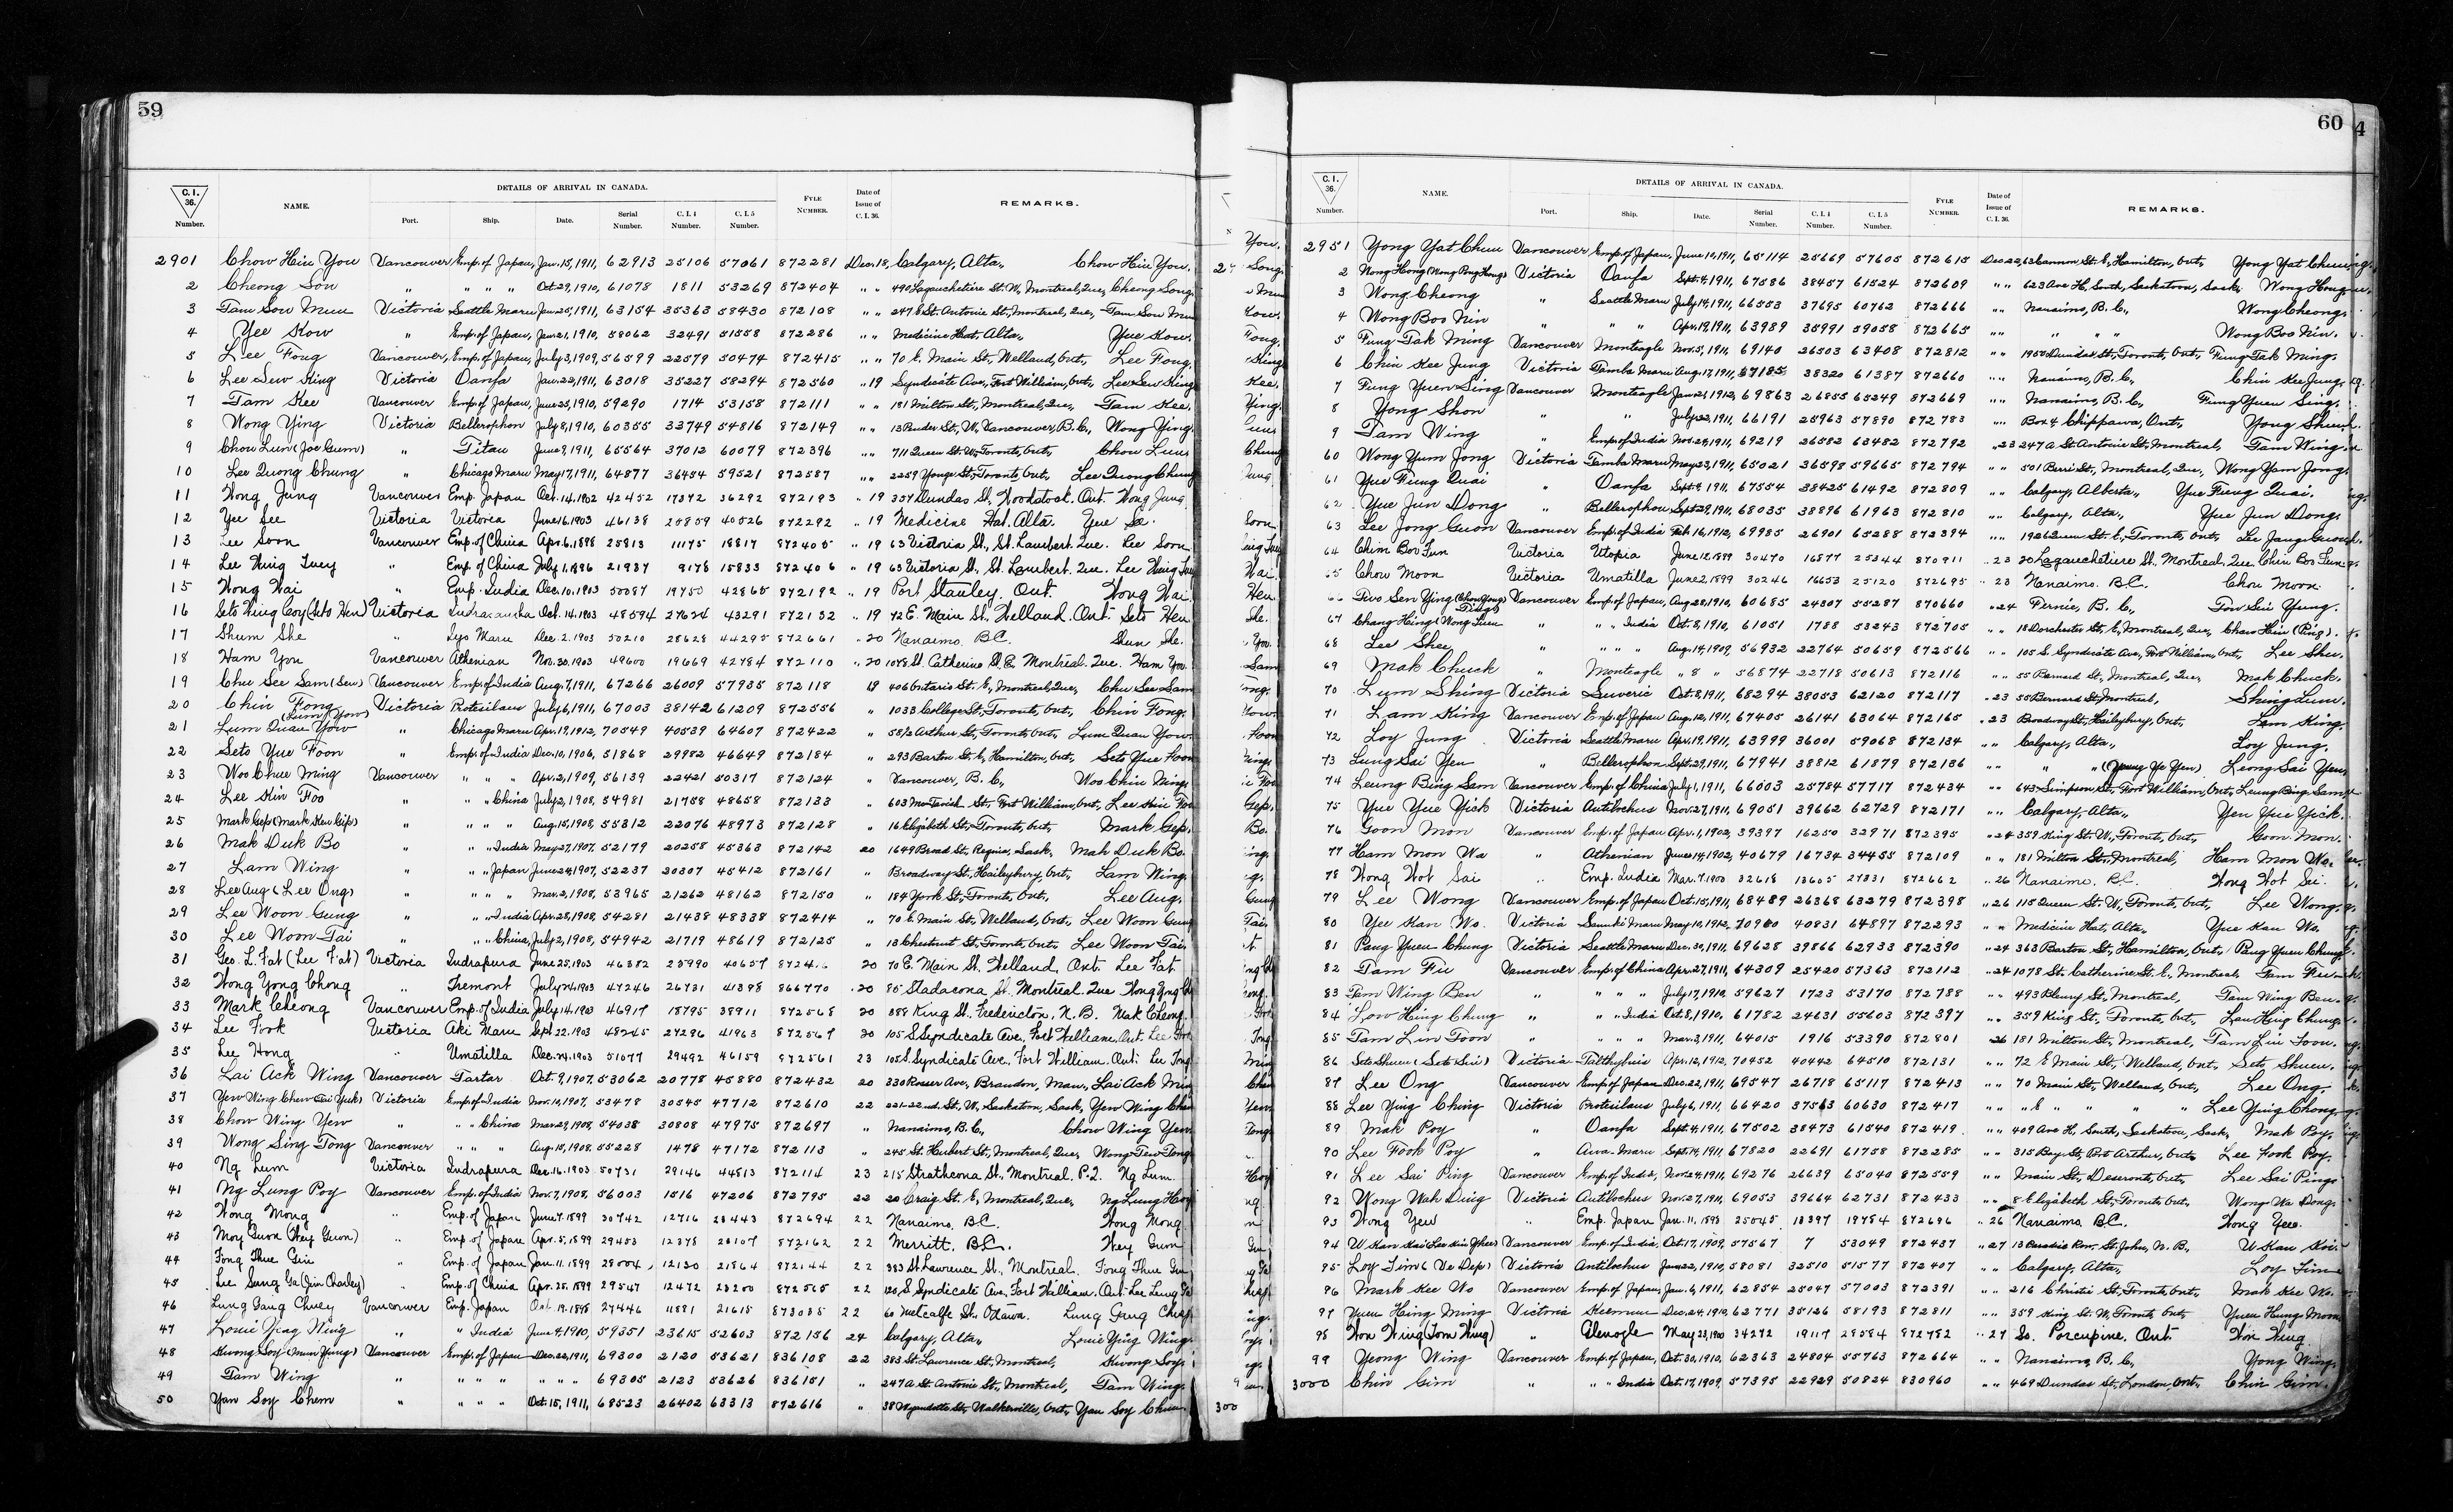 59
C. I. 36. Number. NAME. DETAILS OF ARRIVAL IN CANADA. Port. Ship. Date. Serial Number. C. I. 4 Number. C. I. 5 Number. FYLE NUMBER. Date of Issue of C. I. 36. REMARKS.
2901 Chow Hin You Vancouver Emp. of Japan, Jan. 15, 1911, 62913 25106 57061 872281 Dec. 18, Calgary, Alta., Chow Hin You.
2 Cheong Son " " " " Oct. 29, 1910, 61078 1811 53269 872404 " " 490 Lagauchetiere St. W, Montreal, Que, Cheong Song
3 Tam Sow Mun Victoria Seattle Maru Jan. 25, 1911, 63154 35363 58430 872108 " " St. Antoine St., Montreal, Que, Tam Sow Mun
4 Yee Kow " Emp. of Japan, Jan. 21, 1910, 58062 32491 51558 872286 " " Medicine Hat, Alta., Yee Kow.
5 Lee Fong Vancouver, Emp. of Japan, July 3, 1909, 56599 22579 50474 872415 " " 70 E. Main St., Welland, Ont., Lee Fong.
6 Lee Sew King Victoria Oanfa Jan. 22, 1911, 63018 35227 58294 872560 " 19 Syndicate Ave., Fort William, Ont., Lee Sew King
7 Tam Kee Vancouver Emp. of Japan, June 25, 1910, 59290 1714 53158 872111 " " 181 Milton St., Montreal, Que., Tam Kee.
8 Wong Ying Victoria Bellerophon July 8, 1910, 60355 33749 54816 872149 " " 13 Pender St., W. Vancouver, B.C., Wong Ying
9 Chow Lun (Joe Gum) " Titan June 9, 1911, 65564 37012 60079 872396 " " 711 Queen St. W., Toronto, Ont., Chow Lun
10 Lee Quong Chung " Chicago Maru May 17, 1911, 64877 36454 59521 872587 " " 2259 Yonge St., Toronto, Ont., Lee Quong Chung
11 Wong Jung Vancouver Emp. Japan Oct. 14. 1902 42452 17372 36292 872193 " 19 357 Dundas St., Woodstock. Ont. Wong Jung
12 Yee See Victoria Victoria June 16. 1903 46138 25859 40526 872292 " 19 Medicine Hat. Alta. Yee Se.
13 Lee Soon Vancouver Emp. of China Apr. 6. 1898 25813 11175 18817 872405 " 19 63 Victoria St., St. Lambert. Que. Lee Soon
14 Lee Wing Tuey " Emp. of China July 1. 1896 21937 9178 15833 872406 " 19 63 Victoria St., St. Lambert. Que. Lee Wing Tuey
15 Wong Wai " Emp. India Dec. 10. 1903 50087 19750 42865 872192 " 19 Port Stanley. Ont. Wong Wai.
16 Seto Wing Coy (Seto Hen) Victoria Indrasamha Oct. 14. 1903 48594 27624 43291 872132 " 19 72 E. Main St., Welland. Ont. Seto Hen
17 Shum She " Iyo Maru Dec. 2. 1903 50210 28628 44295 872661 " 20 Nanaimo, B.C. Shun She.
18 Ham You Vancouver Athenian Nov. 30. 1903 49600 19669 42784 872110 " 20 1078 St. Catherine St. E. Montreal. Que. Ham You
19 Chu See Sam (Sew) Vancouver Emp. of India Aug. 7, 1911, 67266 26009 57935 872118 19 406 Ontario St. E., Montreal, Que., Chu See Sam
20 Chin Fong Victoria Protesilaus July 6, 1911, 67003 38142 61209 872556 " 1033 College St., Toronto, Ont., Chin Fong.
21 Lum Quan Yow (Lum Yow) " Chicago Maru Apr. 17, 1912, 70549 40539 64607 872422 " 55½ Arthur St., Toronto, Ont., Lum Quan Yow
22 Seto Yue Foon " Emp. of India Dec. 10, 1906, 51868 29982 46649 872184 " 293 Barton St. E., Hamilton, Ont., Seto Yue Foon
23 Woo Chue Ming Vancouver " " " Apr. 2, 1909, 56139 22421 50317 872124 " Vancouver, B. C., Woo Chin Ming.
24 Lee Kin Foo " " " China July 2, 1908, 54981 21758 48658 872133 " 603 McTavish St., Fort William, Ont., Lee Kin Foo
25 Mark Gep (Mark Kew Gip) " " " " Aug. 15, 1908, 55312 22076 48973 872128 " 16 Elizabeth St., Toronto, Ont., Mark Gep.
26 Mak Duk Bo " " " India May 27, 1907, 52179 20258 45363 872142 20 1649 Broad St., Regina, Sask., Mah Duk Bo.
27 Lam Wing " " " Japan June 24, 1907, 52237 20307 45412 872161 " Broadway St., Haileybury, Ont., Lam Wing.
28 Lee Aug (Lee Ong) " " " " Mar. 2, 1908, 53965 21262 48162 872150 " 184 York St., Toronto, Ont., Lee Aug.
29 Lee Woon Gung " " " India Apr. 28, 1908, 54281 21438 48338 872414 " 70 E. Main St., Welland, Ont., Lee Woon Gung
30 Lee Woon Tai " " " China, July 2, 1908, 54942 21719 48619 872125 " 13 Chestnut St., Toronto, Ont., Lee Woon Tai.
31 Geo. L. Fat (Lee Fat) Victoria Indrapura June 25. 1903 46382 25990 40657 20 70 E. Main St. Welland, Ont. Lee Fat
32 Wong Yong Chong " Tremont July 24. 1903 47246 26731 41398 866770 20 85 Stadacona St. Montreal. Que Wong Yong
33 Mark Cheong Vancouver Emp. of India July 14. 1903 46917 18795 38911 872568 20 388 King St. Fredericton, N. B. Mak Cheong.
34 Lee Fook Victoria Aki Maru Sept. 22. 1903 48245 27296 41963 872567 20 105 S. Syndicate Ave., Fort William, Ont. Lee
35 Lee Hong " Umatilla Dec. 24. 1903 51077 29492 46159 872561 23 105 S. Syndicate Ave., Fort William. Ont. Lee
36 Lai Ack Wing Vancouver Tartar Oct. 9, 1907, 53062 20778 45880 872432 20 330 Rosser Ave., Brandon, Man., Lai Ack
37 Yew Wing Chew Victoria Emp. of India Nov. 10, 1907, 53478 30545 47712 872610 22 221-22nd. St., W., Saskatoon, Sask., Yew Wing Chew
38 Chow Wing Yew " " " China Mar. 29, 1908, 54038 30808 47975 872697 " Nanaimo, B. C., Chow Wing Yew
39 Wong Sing Tong Vancouver " " " Aug. 15, 1908, 55228 1478 47172 872113 " 245 St. Hubert St., Montreal, Que., Wong Tong
40 Ng Lum Victoria Indrapura Dec. 16. 1903 50731 29146 44813 872114 23 215 Strathcona St., Montreal. P.Q. Ng Lum.
41 Ng Lung Poy Vancouver Emp. of India Nov. 7, 1908, 56003 1516 47206 872795 22 20 Craig St. E., Montreal, Que., Ng Lung
42 Wong Mong " Emp. of Japan June 7. 1899 30742 12716 23443 872694 22 Nanaimo, B.C. Wong Mong
43 Moy Guon (Hey Guon) " Emp. of Japan Apr. 5, 1899 29453 12378 23107 872162 22 Merritt. B.C. Hey Guon
44 Fong Thue Gin " Emp. of Japan Jan. 11. 1899 28004 12130 21864 872144 22 383 St. Lawrence St., Montreal. Fong Thue Gin
45 Lee Sung Ga (Jim Charley) " Emp. of China Apr. 25. 1899 29547 12472 23200 872565 22 120 S. Syndicate Ave., Fort William. Ont. Lee Lung Ga
46 Lung Gang Chuey Vancouver Emp. Japan Oct. 19. 1898 27446 11881 21615 873035 22 60 Metcalfe St. Ottawa. Lung Gang Chuey
47 Louie Ying Wing " " India June 4, 1910, 59351 23615 52603 872156 24 Calgary, Alta., Louie Ying Wing.
48 Kwong Soy (Mun Jung) Vancouver Emp. of Japan Dec. 22, 1911, 69300 2120 53621 836108 22 383 St. Lawrence St., Montreal, Kwong Soy.
49 Tam Wing " " " " " " " 69305 2123 53626 836151 " 247A St. Antoine St., Montreal, Tam Wing.
50 Yan Soy Chem " " " " Oct. 15, 1911, 68523 26402 63313 872616 " 38 Wyandotte St., Walkerville, Ont., Yan Soy Chem
60
C. I. 36. Number. NAME. DETAILS OF ARRIVAL IN CANADA. Port. Ship. Date. Serial Number. C. I. 4 Number. C. I. 5 Number. FYLE NUMBER. Date of Issue of C. I. 36. REMARKS.
2951 Yong Yat Chun Vancouver Emp. of Japan, June 10, 1911, 65114 25669 57605 872615 Dec 22, 63 Cannon St. E., Hamilton, Ont., Yong Yat Chun
2 Wong Hong (Wong Pong Hong) Victoria Oanfa Sept. 4, 1911, 67586 38457 61524 872609 " " 623 Ave. H., South, Saskatoon, Sask. Wong Hong
3 Wong Cheong " Seattle Maru July 14, 1911, 66553 37695 60762 872666 " " Nanaimo, B. C., Wong Cheong.
4 Wong Boo Nin " " " Apr. 19, 1911, 63989 35991 59058 872665 " " " " " Wong Boo Nin.
5 Fung Tak Ming Vancouver Monteagle Nov. 5, 1911, 69140 26503 63408 872812 " " 1950 Dundas St., Toronto, Ont., Fung Tak Ming.
6 Chin Kee Jung Victoria Tamba Maru Aug. 17, 1911, 67185 38320 61387 872660 " " Nanaimo, B. C., Chin Kee Jung.
7 Fung Yuen Sing Vancouver Monteagle Jan 21, 1912, 69863 26855 65249 872669 " " Nanaimo, B. C., Fung Yuen Sing.
8 Yong Shon " " July 22, 1911, 66191 25963 57890 872783 " " Box 4 Chippawa, Ont., Yong Shun.
9 Tam Wing " Emp. of India Nov. 24, 1911, 69219 26582 63482 872792 " 23 247 A St. Antoine St., Montreal, Tam Wing
60 Wong Yum Jong Victoria Tamba Maru May 23, 1911, 65021 36598 59665 872794 " " 501 Berri St., Montreal, Que., Wong Yam Jong.
61 Yue Fung Quai " Oanfa Sept. 4, 1911, 67554 38425 61492 872809 " " Calgary, Alberta., Yue Fung Quai.
62 Yue Jun Dong " Bellerophon Sept. 29, 1911, 68035 38896 61963 872810 " " Calgary, Alta., Yue Jun Dong.
63 Lee Jong Guon Vancouver Emp. of India Feb. 16, 1912, 69985 26901 65288 872394 " " 192 Queen St. E., Toronto, Ont., Lee Jong Guon
64 Chim Bor Fun Victoria Utopia June 12, 1899 30470 16877 25344 870911 " 23 20 Lagauchetiere St. Montreal, Que. Chin Bor Fun
65 Chow Moon Victoria Umatilla June 2 1899 30246 16653 25120 872695 " 23 Nanaimo. B.C. Chow Moon.
66 Sen Ying Vancouver Emp. of Japan, Aug. 28, 1910, 60685 24307 55287 870660 " 24 Fernie, B. C., Yung.
67 Chang Hing (Wong Suen Ping) " " " India Oct. 8, 1910, 61051 1788 53243 872705 " " 18 Dorchester St. E., Montreal, Que., Chew Hin (Ping).
68 Lee Shee " " " " Aug. 14, 1909, 56932 22764 50659 872566 " " 105 S. Syndicate Ave., Fort William, Ont., Lee Shee.
69 Mak Chuck " Monteagle " 8 " 56874 22718 50613 872116 " " 55 Bernard St., Montreal, Que., Mak Chuck.
70 Lum Shing Victoria Suveric Oct. 8, 1911, 68294 38053 62120 872117 " 23 55 Bernard St., Montreal, Shing Lum.
71 Lam King Vancouver Emp. of Japan Aug. 12, 1911, 67405 26141 63064 872165 " 23 Broadway St., Haileybury, Ont., Lam King.
72 Loy Jung Victoria Seattle Maru Apr. 19, 1911, 63999 36001 59068 872134 " " Calgary, Alta., Loy Jung.
73 Lung Sai Yen " Bellerophon Sept. 29, 1911, 67941 38812 61879 872136 " " " " (Young Ye Yen) Leong Sai Yen.
74 Leung Bing Sam Vancouver Emp. of China July 1, 1911, 66003 25784 57717 872434 " " 643 Simpson St., Fort William, Ont., Leung Bing Sam
75 Yue Yue Yick Victoria Antilochus Nov. 27, 1911, 69051 39662 62729 872171 " " Calgary, Alta., Yen Yue Yick.
76 Goon Mon Vancouver Emp. of Japan Apr. 1, 1902, 39397 16250 32971 872395 " 24 359 King St. W., Toronto, Ont., Goon Mon.
77 Ham Mon Wa " Athenian June 14, 1902, 40679 16734 34455 872109 " " 181 Milton St., Montreal, Ham Mon Wa.
78 Wong Hot Sai " Emp. India Mar. 7. 1900 32618 13605 27331 872662 " 26 Nanaimo. B.C. Wong Hot Sai.
79 Lee Wong Vancouver Emp. of Japan Oct. 15, 1911, 68489 26368 63279 872398 " 26 115 Queen St. W., Toronto, Ont., Lee Wong.
80 Yee Kan Wo. Victoria Sanuki Maru May 10, 1912, 70980 40831 64897 872293 " " Medicine Hat, Alta., Yue Kan Wo.
81 Pang Yuen Chung Victoria Seattle Maru Dec. 30, 1911, 69628 39866 62933 872390 " 24 363 Barton St., Hamilton, Ont., Pang Yuen Chung
82 Tam Fu Vancouver Emp. of China Apr. 27, 1911, 64309 25420 57363 872112 " 24 1078 St. Catherine St. E., Montreal, Tam Fu
83 Tam Wing Ben " " " " July 17, 1910, 59627 1723 53170 872788 " " 493 Bleury St., Montreal, Tam Wing Ben.
84 Low Hing Chung " " " India Oct. 8, 1910, 61782 24631 55603 872397 " " 359 King St., Toronto, Ont., Lew Hing Chung
85 Tam Lin Toon " " " " Mar. 3, 1911, 64015 1916 53390 872801 26 181 Milton St., Montreal, Tam Lin Toon.
86 Seto Shuen (Seto Sui) Victoria Talthybius Apr. 12, 1912, 70452 40442 64510 872131 " " 72 E Main St., Welland, Ont., Seto Shuen.
87 Lee Ong Vancouver Emp. of Japan Dec. 22, 1911, 69547 26718 65117 872413 " " 70 Main St., Welland, Ont., Lee Ong.
88 Lee Ying Ching Victoria Protesilaus July 6, 1911, 66420 37563 60630 872417 " " " E " " " " Lee Ying Chong
89 Mak Poy " Oanfa Sept. 4, 1911, 67502 38473 61540 872419 " " 409 Ave H, South, Saskatoon, Sask., Mak Poy.
90 Lee Fook Poy " Awa Maru Sept. 14, 1911, 67820 22691 61758 872285 " " 315 Bay St., Port Arthur, Ont., Lee Fook Poy.
91 Lee Sai Ping Vancouver Emp. of India, Nov. 24, 1911, 69276 26639 65040 872559 " " Main St., Deseronto, Ont., Lee Sai Ping.
92 Wong Wah Ding Victoria Antilochus Nov. 27, 1911, 69053 39664 62731 872433 " " 8 Elizabeth St., Toronto, Ont., Wong Wa Dong.
93 Wong Yew " Emp. Japan Jan. 11, 1898 25045 13397 19754 872696 " 26 Nanaimo B.C. Wong Yee.
94 U Kan Kai Vancouver Emp. of India, Oct. 17, 1909, 57567 7 53049 872437 " 27 13 Paradise Row, St. John, N. B., U Kan Kai.
95 Loy Tim (Ve Dep) Victoria Antilochus Jan. 22, 1910, 58081 32510 51577 872407 " " Calgary, Alta., Loy Tim
96 Mark Kee Wo Vancouver Emp. of Japan, Jan. 6, 1911, 62854 25047 57003 872391 " " 216 Christie St., Toronto, Ont., Mak Kee Wo.
97 Yuen Hing Ming Victoria Keemun Dec. 24, 1910, 62771 35126 58193 872811 " " 359 King St. W., Toronto Ont., Yuen Hung Moon
98 Hon Wing (Tom Wing) " Glenogle May 23, 1900 34272 19117 28584 872782 " 27 So. Porcupine. Ont. Hon Wing
99 Yeong Wing Vancouver Emp. of Japan, Oct. 30, 1910, 62363 24804 55763 872664 " " Nanaimo, B. C., Yong Wing.
3000 Chin Gim " " " India Oct. 17, 1909, 57395 22929 50824 830960 " " 469 Dundas St., London, Ont., Chin Gim.